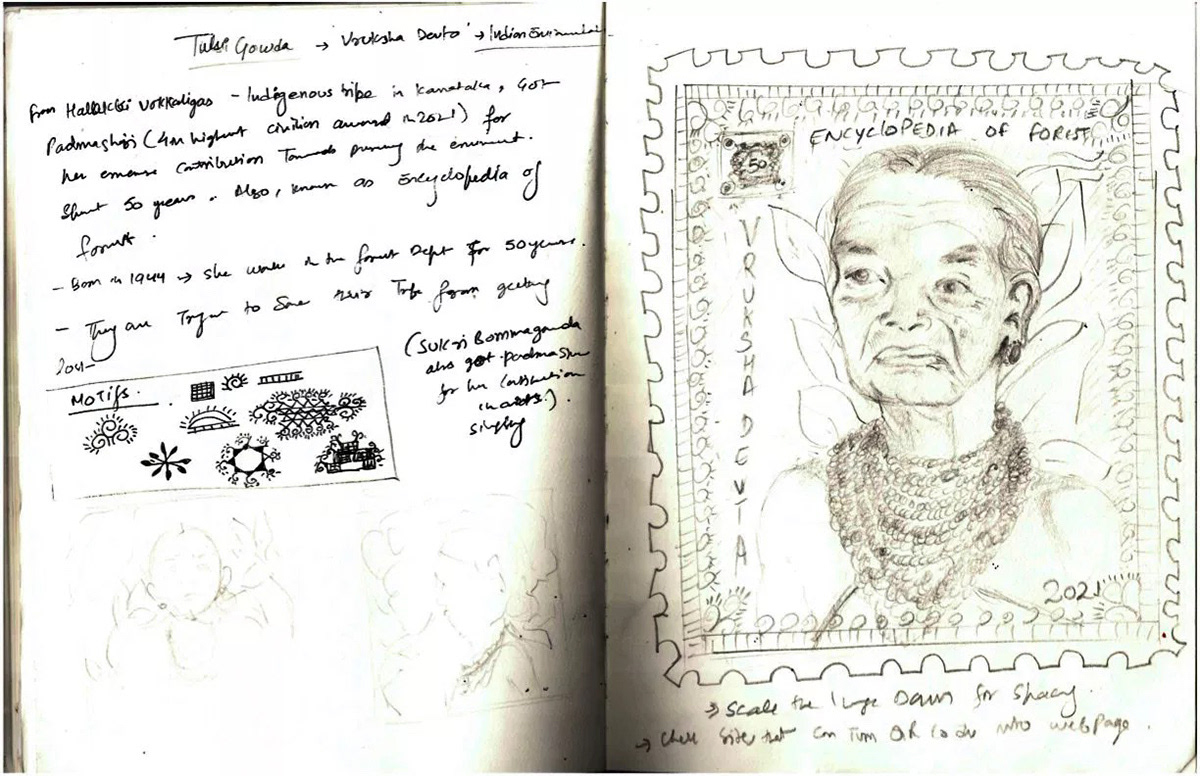 Tulsi Gowda → Vruksha Devta → Indian
from Hallakki Vokkaligas - Indigenous tribe in Karnataka, Got
Padmashri (4th highest civilian award in 2021) for
her emense contribution Towards the
Spent 50 years. Also, known as Encyclopedia of
forest.
- Born in 1944 → she works in the forest Dept for 50 years.
- They are to save their Tribe from getting
(Sukri Bommagowda
also got padmashri
for her contribution
in arts).
singing
MOTIFS.
ENCYCLOPEDIA OF FOREST
50
VRUKSHA DEVTA
2021
→ Scale the Image Down for Spacing.
→ Check sites that can Turn QR code into webpage.